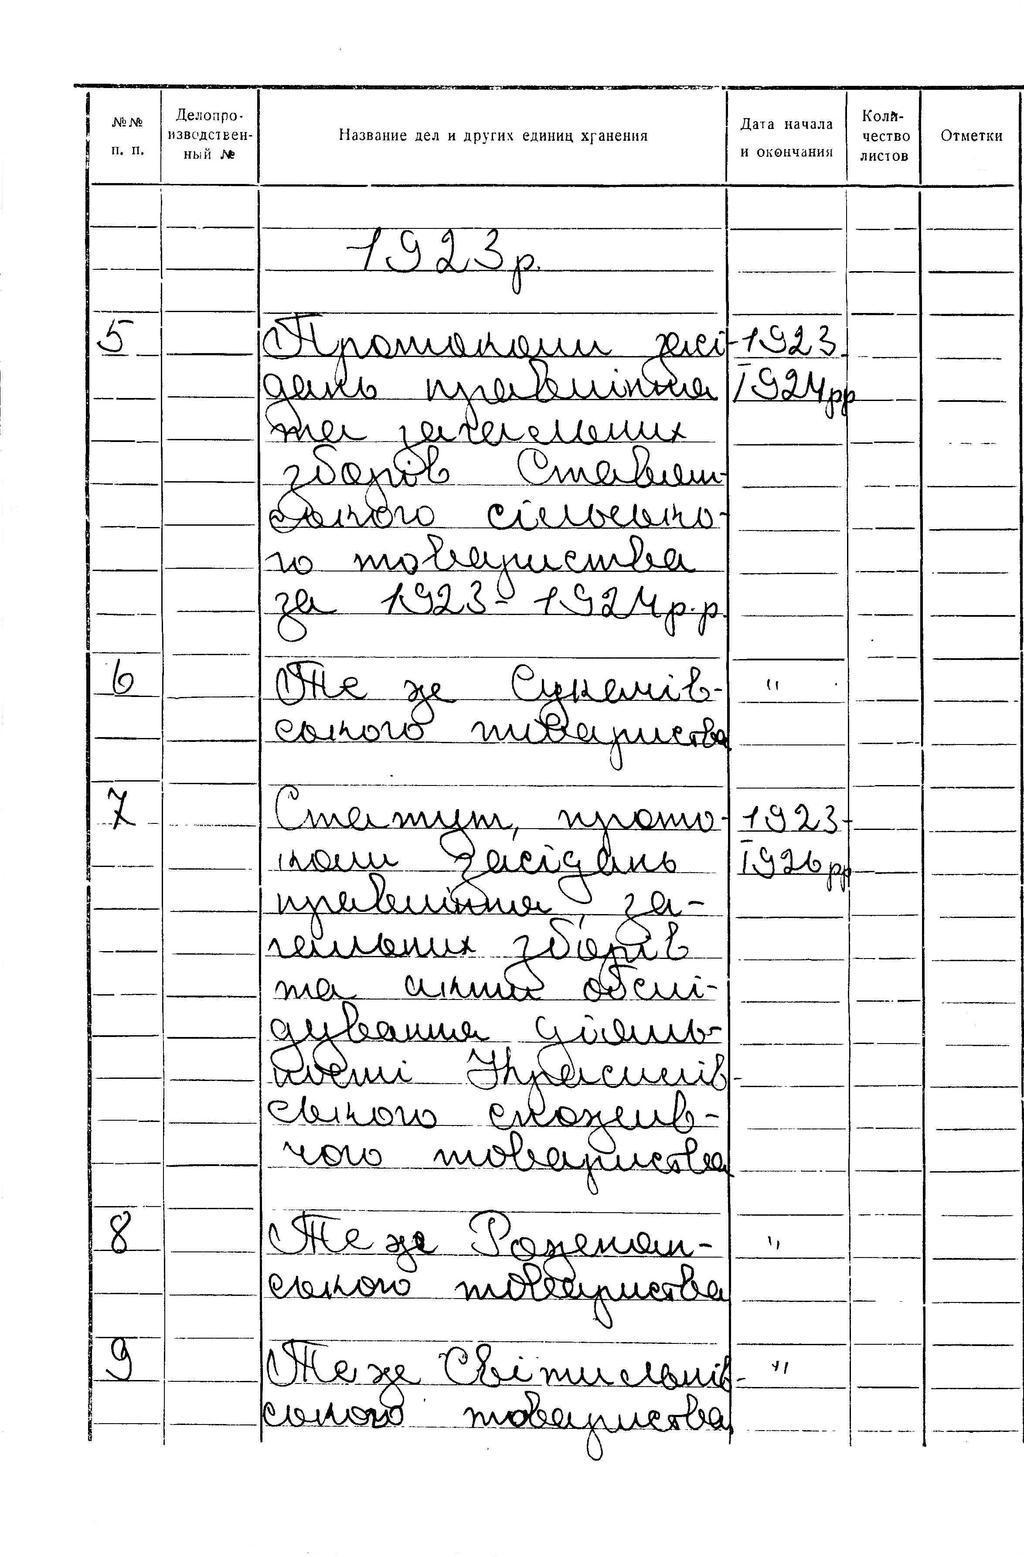 №№ п. п.
Делопроизводственный №
Название дел и других единиц хранения
Дата начала и окончания
Количество листов
Отметки
1923 р.
5 Протоколи засі- 1923-
дань правління 1924 рр
та загальних
зборів Ставищ-
ського сільсько-
го товариства
за 1923-1924 р.р.
6 Те же "
ського товариства
7 Статут, прото- 1923-
коли засідань 1926 рр
правління, за-
гальних зборів
та акти обслі-
дування діяль-
ності Красилів-
ського спожив-
чого товариства
8 Те же "
ського товариства
9 Те же Світильнів- "
ського товариства